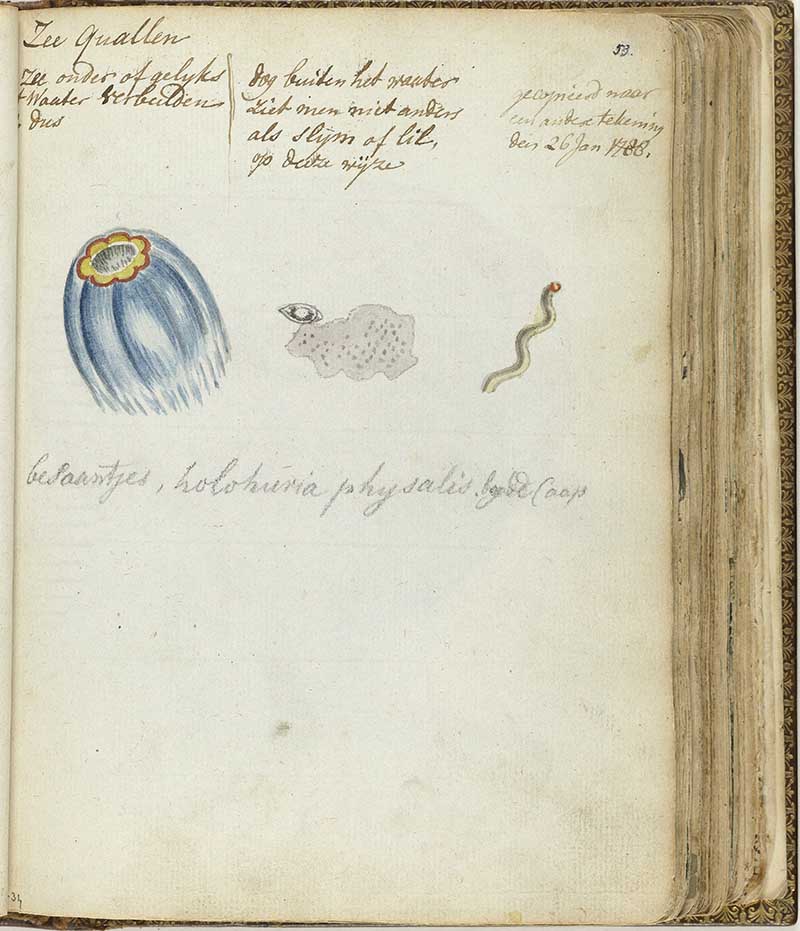 Zee Quallen
Zee onder of gelyks
t Waater verbeelden
dus
dog buiten het waater
ziet men niet anders
als slijm of lil,
op deeze wijze
53.
gecopieerd naar
een andere tekening
den 26 Jan 1788.
besaantjes, holohuria physalis. by de Caap
34